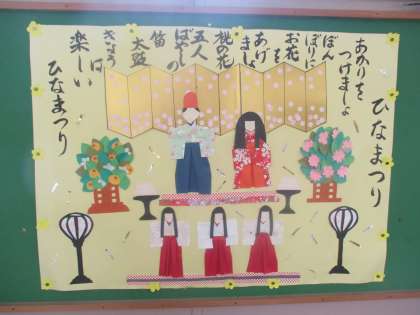 ひなまつり
あかりを
つけましょ
ぼん
ぼりに
お花
を
あげ
ましょ
桃の花
五人
ばやしの
笛
太鼓
きょう
は
楽しい
ひなまつり